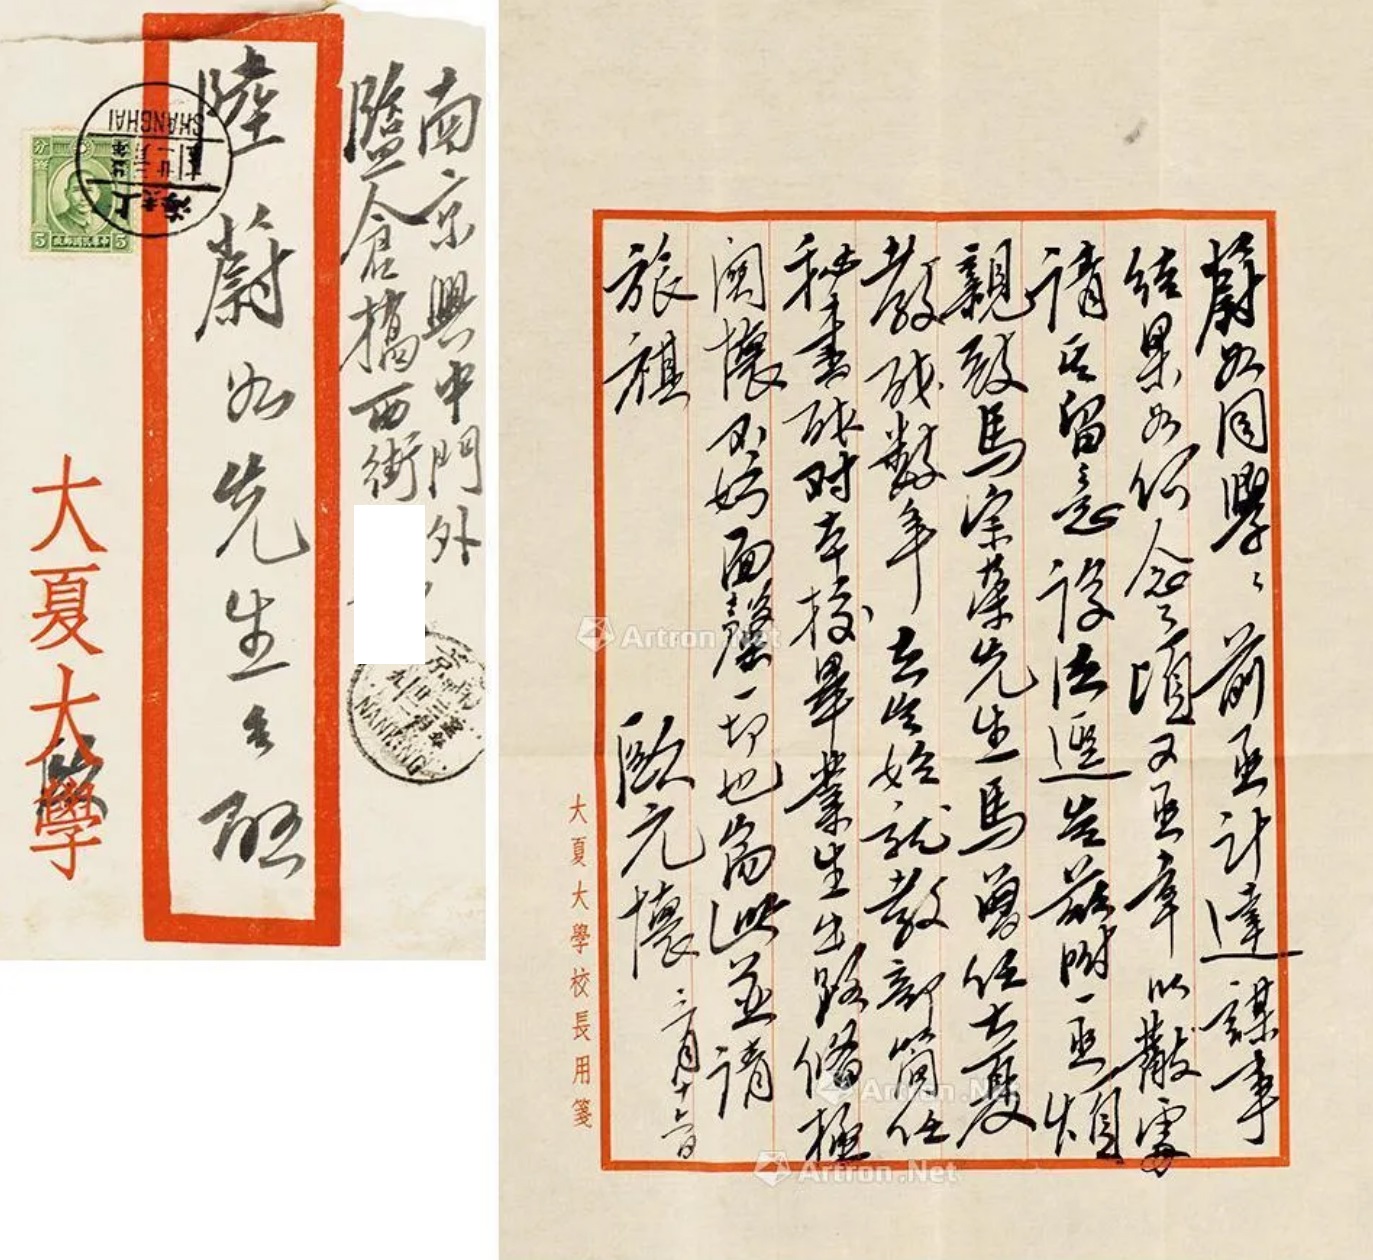 南京興中門外
鹽倉橋西街
陸蔚如先生台啓
大夏大學
歐
5 5
上海
SHANGHAI
南京
NANKING
蔚如同學：前函計達謀事
結果如何念念頃又函章以黻處
請其留意設法選告茲附一函煩
親致馬宗榮先生馬曾任大夏
教職數年去歲始就教部簡任
秘書職對本校畢業生出路備極
關懷不妨面談一切也耑此並請
旅祺
歐元懷
三月十六日
大夏大學校長用箋
Artron.Net
Artron.Net
Artron.Net